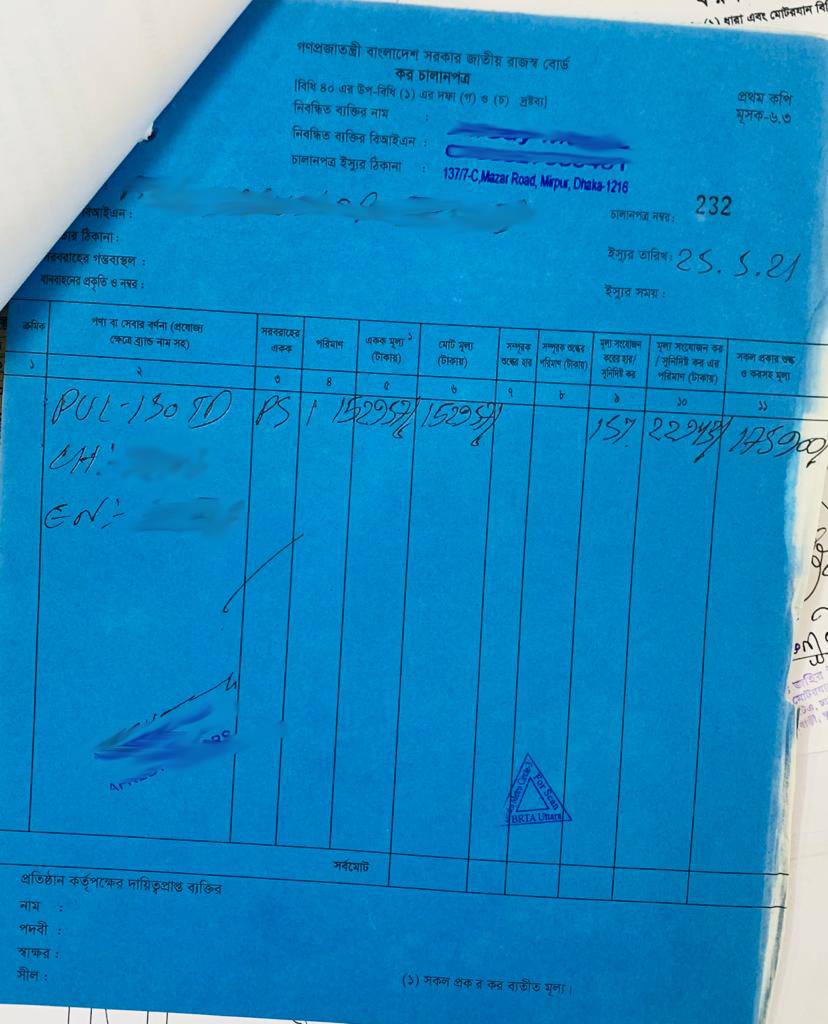 (১) ধারা এবং মোটরযান বিধি
গণপ্রজাতন্ত্রী বাংলাদেশ সরকার জাতীয় রাজস্ব বোর্ড
কর চালানপত্র
[বিধি ৪০ এর উপ-বিধি (১) এর দফা (গ) ও (চ) দ্রষ্টব্য]
প্রথম কপি
মূসক-৬.৩
নিবন্ধিত ব্যক্তির নাম :
নিবন্ধিত ব্যক্তির বিআইএন :
চালানপত্র ইস্যুর ঠিকানা : 137/7-C,Mazar Road, Mirpur, Dhaka-1216
বিআইএন :
ঠিকানা :
গন্তব্যস্থল :
যানবাহনের প্রকৃতি ও নম্বর :
চালানপত্র নম্বর : 232
ইস্যুর তারিখ : 25.5.21
ইস্যুর সময় :
ক্রমিক
পণ্য বা সেবার বর্ণনা (প্রযোজ্য ক্ষেত্রে ব্র্যান্ড নাম সহ)
সরবরাহের একক
পরিমাণ
একক মূল্য১ (টাকায়)
মোট মূল্য (টাকায়)
সম্পূরক শুল্কের হার
সম্পূরক শুল্কের পরিমাণ (টাকায়)
মূল্য সংযোজন করের হার/ সুনির্দিষ্ট কর
মূল্য সংযোজন কর / সুনির্দিষ্ট কর এর পরিমাণ (টাকায়)
সকল প্রকার শুল্ক ও করসহ মূল্য
১ ২ ৩ ৪ ৫ ৬ ৭ ৮ ৯ ১০ ১১
PUL-150 TD PS 1 152957/ 152957/ 15% 22943/ 175900/
CH:-
EN:-
For Scan
BRTA Uttara
সর্বমোট
প্রতিষ্ঠান কর্তৃপক্ষের দায়িত্বপ্রাপ্ত ব্যক্তির
নাম :
পদবী :
স্বাক্ষর :
সীল :
(১) সকল প্রকার কর ব্যতীত মূল্য।